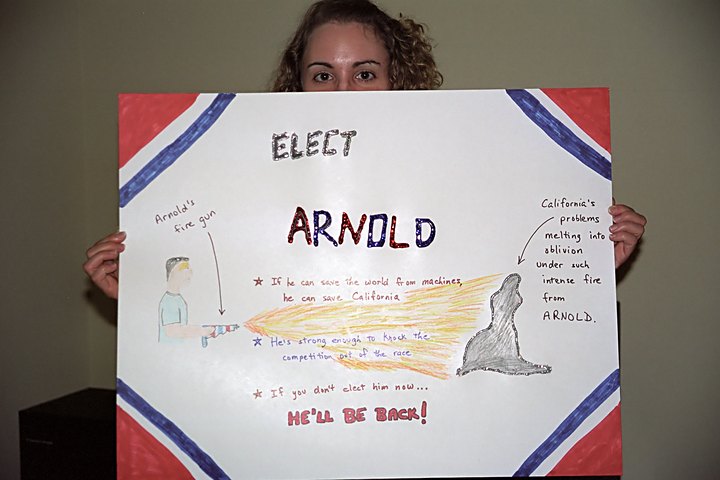 ELECT
ARNOLD
Arnold's
fire gun
California's
problems
melting into
oblivion
under such
intense fire
from
ARNOLD.
★ If he can save the world from machines,
he can save California
★ He's strong enough to knock the
competition out of the race
★ If you don't elect him now...
HE'LL BE BACK!